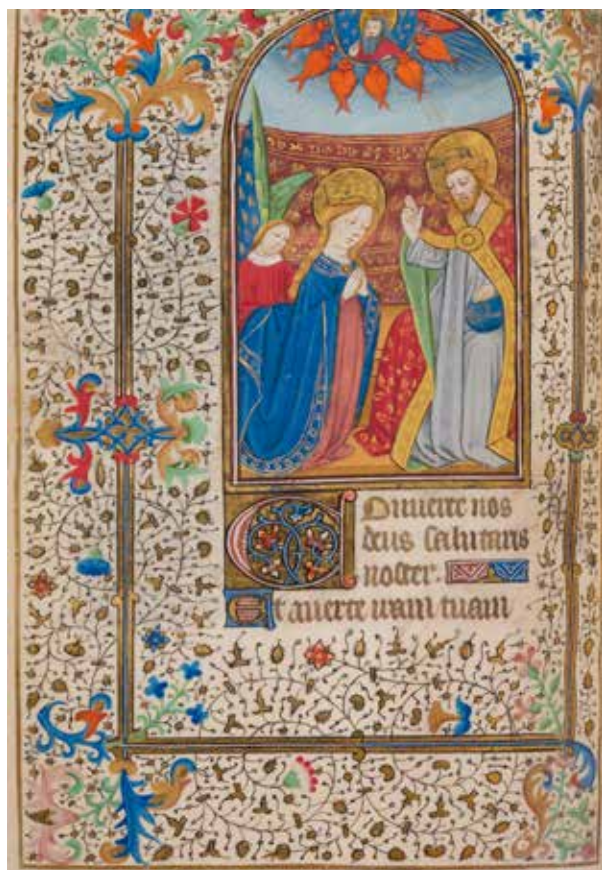 Conuerte nos
deus salutaris
noster.
Et auerte iram tuam